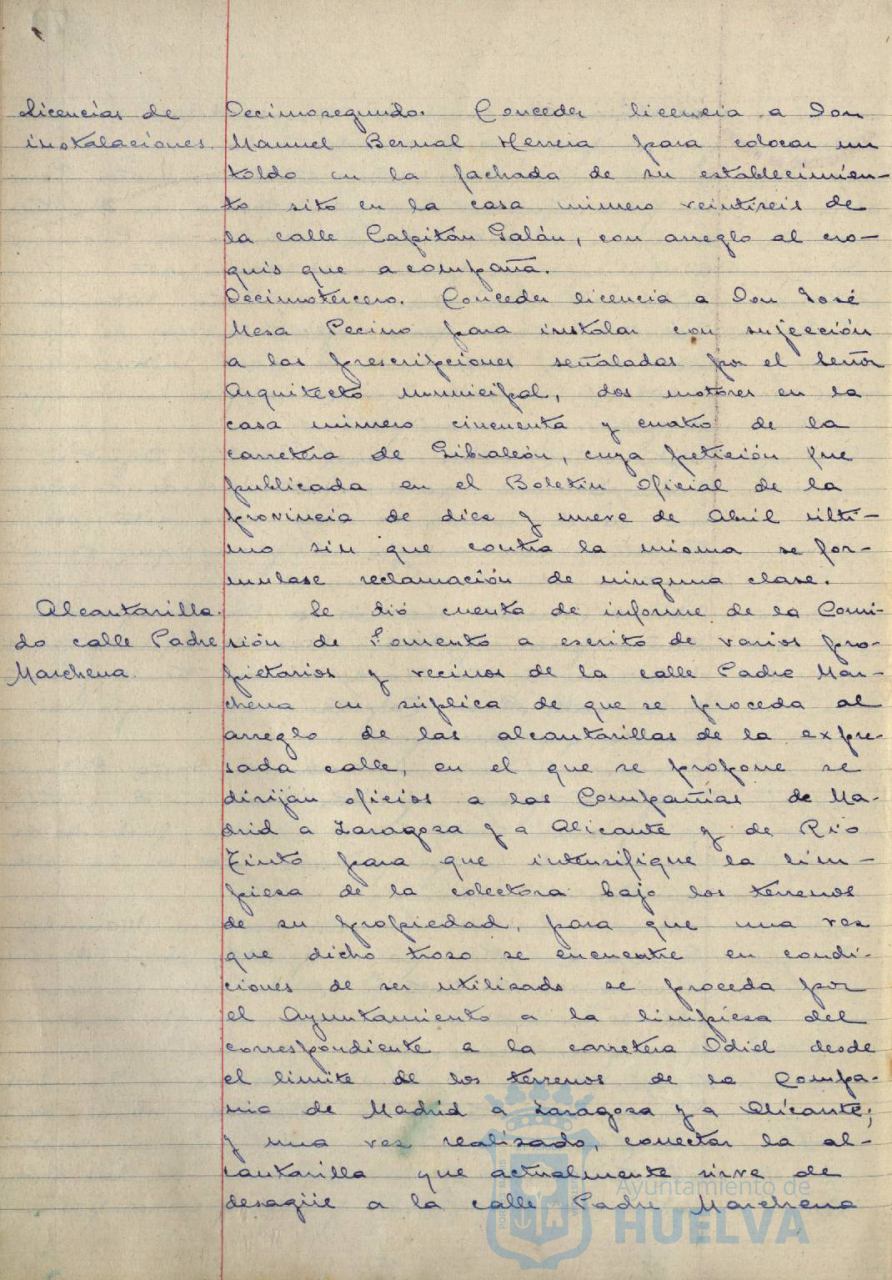 Licencias de
instalaciones.
Decimosegundo. Conceder licencia a Don
Manuel Bernal Herrera para colocar un
toldo en la fachada de su establecimien-
to sito en la casa número veintiseis de
la calle Capitán Galán, con arreglo al cro-
quis que acompaña.
Decimotercero. Conceder licencia a Don José
Mesa Pecino para instalar con sujección
a las prescripciones señaladas por el Señor
Arquitecto municipal, dos motores en la
casa número cincuenta y cuatro de la
carretera de Gibraleón, cuya petición fue
publicada en el Boletín Oficial de la
provincia de diez y nueve de Abril últi-
mo sin que contra la misma se for-
mulase reclamación de ninguna clase.
Alcantarilla-
do calle Padre
Marchena.
Se dió cuenta de informe de la Comi-
sión de Fomento a escrito de varios pro-
pietarios y vecinos de la calle Padre Mar-
chena en súplica de que se proceda al
arreglo de las alcantarillas de la expre-
sada calle, en el que se propone se
dirijan oficios a las Compañías de Ma-
drid a Zaragoza y a Alicante y de Rio
Tinto para que intensifique la lim-
pieza de la colectora bajo los terrenos
de su propiedad, para que una vez
que dicho trozo se encuentre en condi-
ciones de ser utilizado se proceda por
el Ayuntamiento a la limpieza del
correspondiente a la carretera Odiel desde
el límite de los terrenos de la Compa-
ñia de Madrid a Zaragoza y a Alicante;
y una vez realizado, conectar la al-
cantarilla que actualmente sirve de
desagüe a la calle Padre Marchena
Ayuntamiento de
HUELVA